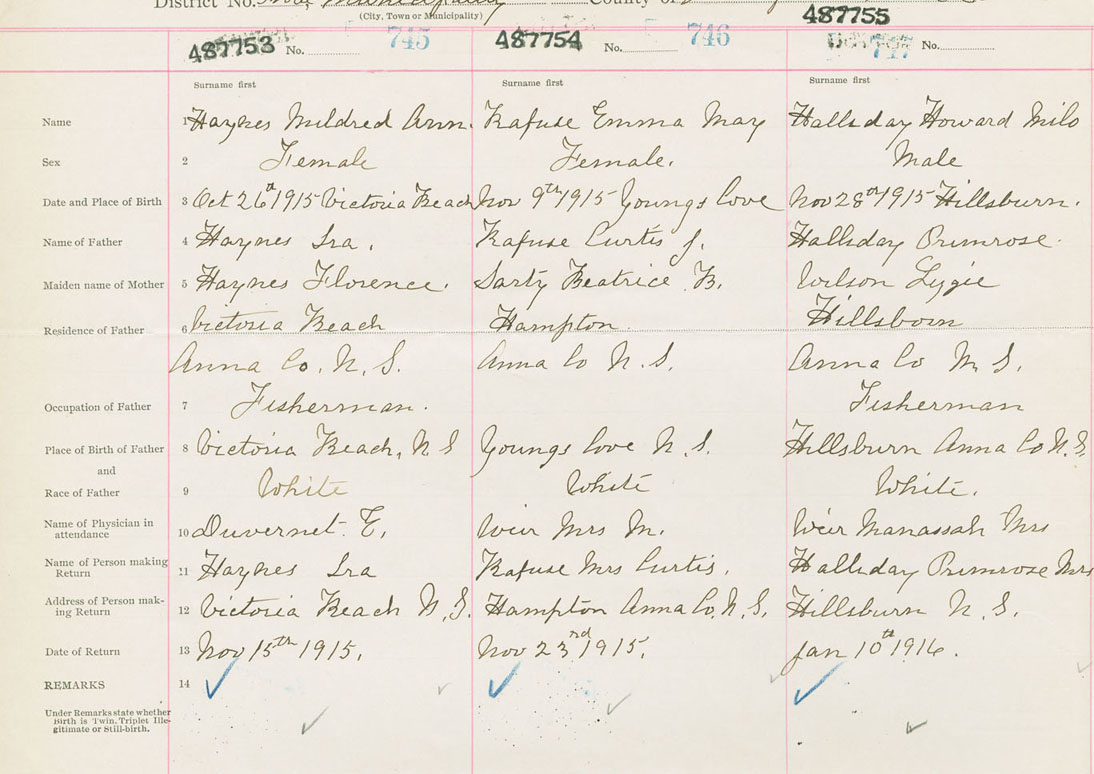 District No. Municipality County of
(City, Town or Municipality)
487753 No. 745 487754 No. 746 487755 No. 747
Surname first Surname first Surname first
Name 1 Haynes Mildred Ann. Rafuse Emma May Halliday Howard Milo
Sex 2 Female Female. Male
Date and Place of Birth 3 Oct 26th 1915 Victoria Beach Nov 9th 1915 Youngs Cove Nov 28th 1915 Hillsburn.
Name of Father 4 Haynes Ira. Rafuse Curtis J. Halliday Primrose.
Maiden name of Mother 5 Haynes Florence. Sarty Beatrice B. Wilson Lygie
Residence of Father 6 Victoria Beach Hampton. Hillsborn
Anna Co. N. S. Anna Co N. S. Anna Co N. S.
Occupation of Father 7 Fisherman. Fisherman
Place of Birth of Father 8 Victoria Beach, N. S Youngs Cove N. S. Hillsburn Anna Co N. S.
and
Race of Father 9 White White White.
Name of Physician in attendance 10 Duvernet E. Weir Mrs M. Weir Manassah Mrs
Name of Person making Return 11 Haynes Ira Rafuse Mrs Curtis. Halliday Primrose Mrs
Address of Person mak-
ing Return 12 Victoria Beach N. S. Hampton Anna Co. N. S. Hillsburn N. S.
Date of Return 13 Nov 15th 1915. Nov 23rd 1915. Jan 10th 1916.
REMARKS 14
Under Remarks state whether
Birth is Twin, Triplet Ille-
gitimate or Still-birth.